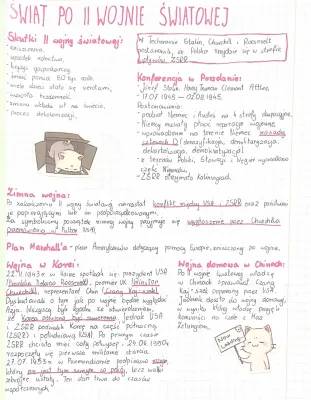 ŚWIAT PO II WOJNIE ŚWIATOWEJ
Skutki II wojny światowej:
- zniszczenia,
- upadek rolnictwa,
- kryzys gospodarczy,
- śmierć ponad 80 tys. osób,
- wiele osób stało się sierotami,
- zmiana układu sił na świecie,
- proces dekolonizacji,
W Teheranie Stalin, Churchill i Roosevelt
postanowili, że Polska znajdzie się w strefie
wpływów ZSRR.
Konferencja w Poczdamie:
- Józef Stalin, Harry Truman, Clement Attlee,
- 17.07.1945 - 02.08.1945.
Postanowiono:
- podział Niemiec i Austrii na 4 strefy okupacyjne,
- Niemcy musiały płacić reparacje wojenne,
- wprowadzono na terenie Niemiec zasadę
czterech D (denazyfikacja, demilitaryzacja,
dekartelizacja, demokratyzacja),
- z terenów Polski, Słowacji i Węgier wysiedlono
część Niemców,
- ZSRR otrzymało Kaliningrad.
Zimna wojna:
Po zakończeniu II wojny światowej narastał konflikt między USA i ZSRR oraz państwami
je popierającymi lub im podporządkowanymi.
Za symboliczny początek zimnej wojny przyjmuje się wygłoszenie przez Churchilla
przemówienia w Fulton (USA).
Plan Marshall'a - plan Amerykanów dotyczący pomocy Europie, zniszczonej po wojnie.
Wojna w Korei:
22.11.1943r. w Kairze spotkali się: prezydent USA
(Franklin Delano Roosevelt), premier UK (Winston
Churchill), reprezentant Chin (Czang Kaj-szek).
Dyskutowali o tym jak po wojnie będzie wyglądać
Azja.
że Korea powinna być zjednoczona, jednak USA
i ZSRR podzieliło Koreę na część północną
(ZSRR) i południową (USA). Po pewnym czasie
ZSRR chciało mieć cały półwysep. 24.06.1950r.
rozpoczęły się pierwsze militarne starcia.
27.07.1953r. w Panmundżonie podpisano
który nie jest tym samym co pokój, lecz walki
zbrojne ustały. Ten stan trwa do czasów
współczesnych.
Wojna domowa w Chinach:
Po II wojnie światowej władzę
w Chinach sprawował Czang
Kaj-szek popierany przez USA.
Jednak doszło do wojny domowej,
w wyniku której władzę przejęli
komuniści na czele z Mao
Zetungiem.